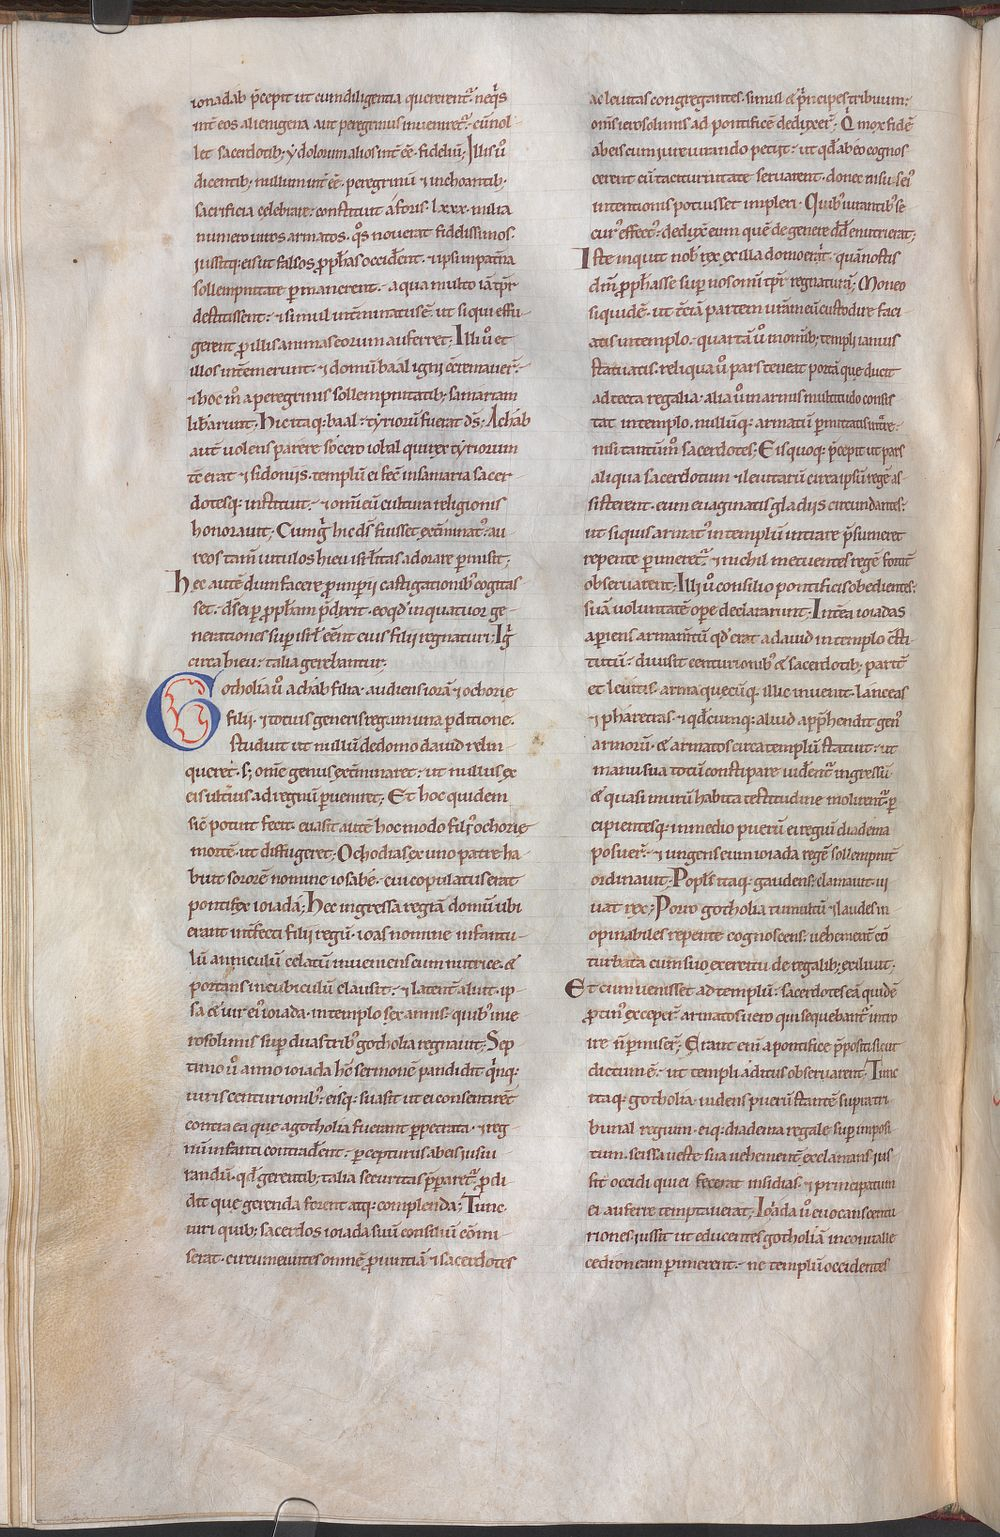 ionadab p̄cepit ut cum diligentia quererent᷑. neq͛s
int̄ eos alienigena aut peregrinus inueniret᷑. cū nol-
let sacerdotib; ydolorum alios int̄ eē. fidelium; Illis ū
dicentib; nullum int̄ eē. peregrinū ⁊ inchoantib;
sacrificia celebrare. constituit aforis. lxxx. milia
numero uiros armatos. q͛s nouerat fidelissimos.
iussitq; eis ut falsos ꝓph̄as occiderent. ⁊ ipsum patriā
sollempnitate permanerent. a qua multo iā tp̄r
destitissent. ⁊ simul int̄minatus ē. ut siqui effu-
gerent ꝓ illis animas eorum auferret; Illi ū et
illos int̄emerunt. ⁊ domū baal igni c̄remauer̄.
⁊ hoc m̊ a peregrinis sollempnitatib; samariam
lib̄arunt; Hic itaq; baal. tyriorū fuerat dn̄s; Achab
aut̄ uolens parere socero iobal qui rex tyriorum
tē erat ⁊ sidoniis. templū ei fec̄ in samaria sacer-
dotesq; instituit. ⁊ om̄i eū cultura religionis
honorauit; Cumq̄ hic ds̄ fuisset ext̄minat᷒. au-
reos tam̄ uitulos hieu isrl̄itas adorare permisit;
Hec aut̄ dum facere ꝓ impii castigationib᷒ cogitas-
set. ds̄ ei per ꝓph̄am p̄dixit. eo qd̄ in quatuor ge-
nerationes sup isrl̄ eēnt eius filii regnaturi; Ig̅
circa hieu. talia gerebantur;
Gotholia ū achab filia. audiens iorā ⁊ ochozie
filii. ⁊ totius generis regum una perditione.
studuit ut nullum de domo dauid relin-
queret. s; omē genus ext̄minaret. ut nullus ex
eis ult̄ius ad regnū perueniret; Et hoc quidem
sic̄ potuit fecit. euasit aut̄ hoc modo fili᷒ ochozie
mortē. ut diffugeret; Ochodias ex uno patre ha-
buit sororē nomine iosabé. cui copulatus erat
pontifex ioiada; Hec ingressa regiā domū ubi
erant int̄fecti filii regū. ioas nomine infantu-
lū anniculū celatū inueniens cum nutrice. &
portans in cubiculū clausit. ⁊ latent̄ aluit. ip-
sa & uir ei᷒ ioiada. in templo sex annis. quib᷒ in ie-
rosolimis sup duas trib᷒ gotholia regnauit; Sep-
timo ū anno ioiada hc̄ sermonē pandidit q͛nq;
uiris centurionib᷒; eisq; suasit ut ei consentirēt
contra ea que a gotholia fuerant perpetrata. ⁊ reg-
nū infanti contradēnt. percepturus ab eis iusiu-
randū. qd̄ gerentib; talia securitas p̄pararet᷑. ꝓdi-
dit que gerenda forent atq; complenda; Tunc
uiri quib; sacerdos ioiada suū consiliū cōmi-
serat. circumeuntes omnē ꝓuintiā ⁊ sacerdotes
ac leuitas congregantes. simul & p͛ncipes tribuum.
om̄s ierosolimis ad pontificē deduxer̄; Q͛ mox fidē
ab eis cum iureiurando petiit. ut qd̄ ab eo cognos-
cerent cū taciturnitate seruarent. donec nisu sei᷒
intentionis potuisset impleri. Quib᷒ iurantib᷒ se-
cur᷒ effect᷒. deduxit eum quē de genere dd̄ enutrierat;
Iste inquit nob᷒ rex ex illa domo erit. quā nostis
dm̄ ꝓph̄asse sup uos omī tp̄r regnaturā; Moneo
siquidē. ut t̄ciā partem ur̄am eū custodire faci-
atis in templo. quartā ū in omnib; templi ianuis
statuatis. reliqua ū pars teneat portā que ducit
ad tecta regalia. alia ū inarmis multitudo consis-
tat in templo. nullūq; armatū permittatis int̄re.
nisi tantum̊ sacerdotes; Eis quoq; p̄cepit ut pars
aliqua sacerdotum ⁊ leuitarū circa ipsū regē as-
sisterent. eum euaginatis gladiis circundantes.
ut siquis armat᷒ in templū intrare p̄sumeret
repente perimeret᷑. ⁊ nichil metuentes regē fortit̄
obseruarent; Illi ū consilio pontificis obedientes.
suā uoluntatē ope declararunt; Int̄ea ioiadas
aperiens armarītū qd̄ erat a dauid in templo c̄sti-
tutū. diuisit centurionib᷒ & sacerdotib; partē
et leuitis. arma quecūq; illic inuenit. lanceas
⁊ pharetras. ⁊ qd̄cumq; aliud app̄hendit gen᷒
armorū. & armatos circa templū statuit. ut
manu sua totū constipare uident᷑ ingressū
& quasi murū habita testitudine molirent᷑. per-
cipientesq; in medio puerū ei regni diadema
posuer̄. ⁊ ungens eum ioiada regē sollempnit̄
ordinauit; Popl̄s itaq; gaudens. clamauit. ui-
uat rex; Porro gotholia tumultū ⁊ laudes in-
opinabiles repente cognoscens. uehement̄ cō-
turbata cum suo exercitu de regalib; exiliuit;
Et cum uenisset ad templū. sacerdotes eā quidē
ꝓtin᷒ exceper̄. armatos uero qui sequebant᷑ intro-
ire n̄ permiser̄; Erant eni a pontifice p̄positi sicut
dictum ē. ut templi aditus obseruarent; Tunc
itaq; gotholia. uidens puerū stantē supra tri-
bunal regium. eiq; diadema regale sup imposi-
tum. scissa ueste sua uehement̄ exclamans. ius-
sit occidi qui ei fecerat insidias. ⁊ principatum
ei auferre temptauerat; Ioiada ū euocans centu-
riones iussit ut educentes gotholiā in conualle
cedron eam perimerent. ne templū occidentes